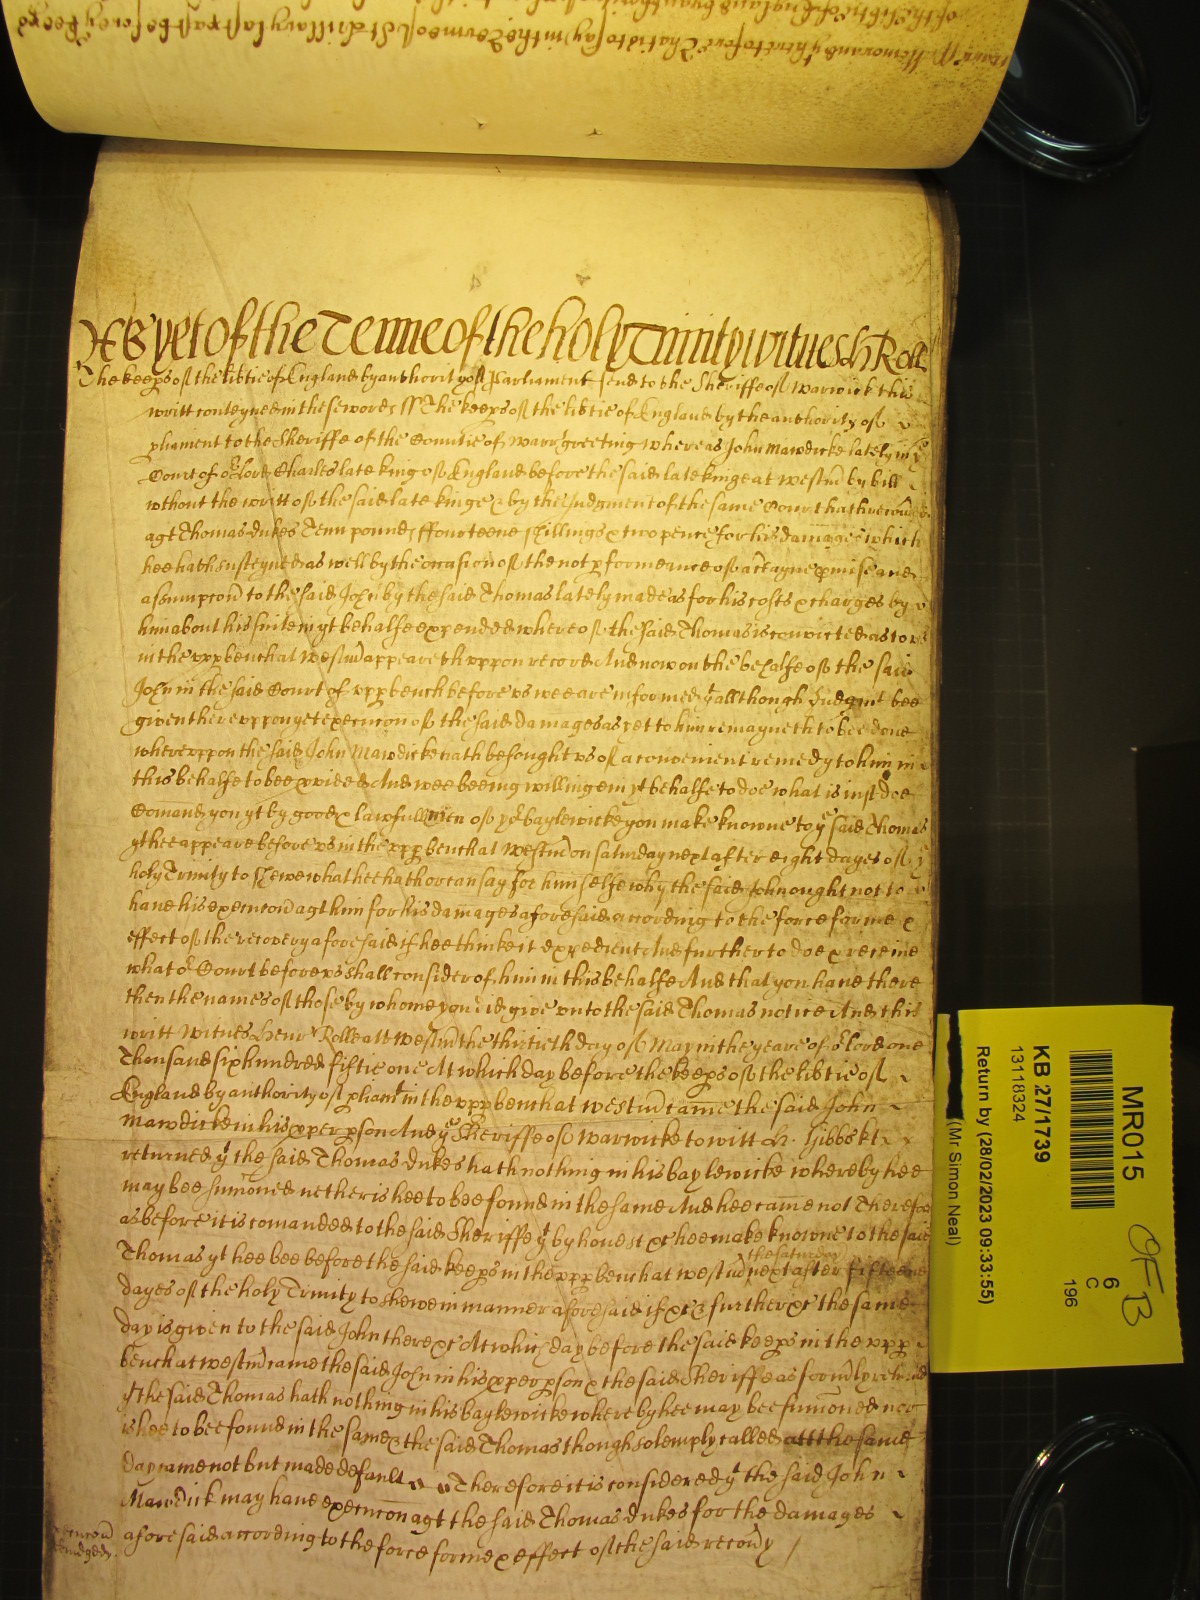 As yet of the Terme of the holy Trinity witnes H Rolle
The keeps of the libtie of England by authority of Parliament send to the Sheriffe of Warwick this
writt conteyned in these words ss The keeps of the libtie of England by the authority of
pliament to the Sheriffe of the Countie of Warr greeting whereas John Mawdicke lately in ye
Court of or Lord Charles late king of England before the said late kinge at westm by bill
wthout the writt of the said late kinge & by the Judgment of the same Court hath recoūed
agt Thomas Dukes Tenn pounds ffourteene shillings & two pence for his damages which
hee hath susteyned as well by the occasion of the not pformeance of a ctayne pmise and
assumpcon to the said John by the said Thomas lately made as for his costs & charges by
him about his suite in yt behalfe expended whereof the said Thomas is convicted as to us
in the upp bench at westm appeareth uppon record And now on the behalfe of the said
John in the said Court of upp bench before us wee are informed yt allthough Judgmt bee
given thereuppon yet execucon of the said damages as yet to him remayneth to bee done
whereuppon the said John Mawdicke hath besought us of a convenient remedy to him in
this behalfe to bee pvided And wee beeing willing in yt behalfe to doe what is iust doe
Comand you yt by good & lawfull men of yor baylewicke you make knowne to ye said Thomas
yt hee appeare before us in the upp bench at westm on saturday next after eight dayes of ye
holy Trinity to shewe what hee hath or can say for himselfe why the said John ought not to
have his execucon agt him for his damages aforesaid according to the force forme &
effect of the recovery aforesaid if hee thinke it expedient And further to doe & receive
what or Court before us shall consider of him in this behalfe And that you have there
then the names of those by whome you did give unto the said Thomas notice And this
writt witnes Henr Rolle att westm the thirtieth day of May in the yeare of or Lord one
Thousand six hundred fiftie one At which day before the keeps of the libtie of
England by authority of pliamt in the upp bench at westm came the said John
Mawdicke in his pper pson And ye Sheriffe of Warwicke to witt R. Gibbs kt
returned yt the said Thomas Dukes hath nothing in his baylewicke whereby hee
may bee sumoned nether is hee to bee found in the same And hee came not Therefore
as before it is comanded to the said Sheriffe yt by honest &c hee make knowne to the said
the saturday
Thomas yt hee bee before the said keeps in the upp bench at westm next after fifteene
dayes of the holy Trinity to shewe in manner aforesaid if &c & further &c the same
day is given to the said John there &c At which day before the said keeps in the upp
bench at westm came the said John in his pper pson & the said Sheriffe as formly retorned
yt the said Thomas hath nothing in his baylewicke whereby hee may bee sumoned nor
is hee to bee found in the same & the said Thomas though solemply called att the same
day came not but made default Therefore it is considered yt the said John
Mawdick may have execucon agt the said Thomas Dukes for the damages
aforesaid according to the force forme & effect of the said recovy
MR015
KB 27/1739
13118324
6
C
196
Return by (28/02/2023 09:33:55)
(Mr Simon Neal)